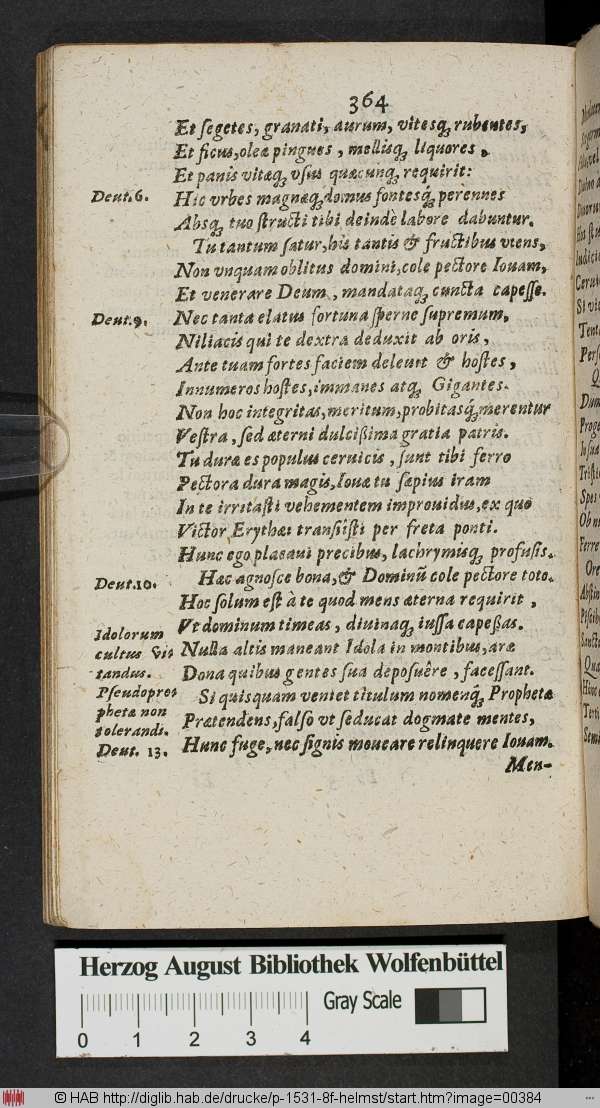 364
Et segetes, granati, aurum, vitesq́; rubentes,
Et ficus, oleæ pingues, mellisq́; liquores,
Et panis vitæq́; vsus quæcunq́; requirit:
Deut. 6.
Hic vrbes magnæq́; domus fontesq́; perennes
Absq́; tuo structi tibi deinde labore dabuntur.
Tu tantum satur, his tantis & fructibus vtens,
Non vnquam oblitus domini, cole pectore Iouam,
Et venerare Deum, mandataq́; cuncta capesse.
Deut. 9.
Nec tanta elatus fortuna sperne supremum,
Niliacis qui te dextra deduxit ab oris,
Ante tuam fortes faciem deleuit & hostes,
Innumeros hostes, immanes atq́; Gigantes.
Non hoc integritas, meritum, probitasq́; merentur
Vestra, sed æterni dulcißima gratia patris.
Tu duræ es populus ceruicis, sunt tibi ferro
Pectora dura magis, Iouæ tu sæpius iram
In te irritasti vehementem improuidus, ex quo
Victor Erythæi transisti per freta ponti.
Hunc ego placaui precibus, lachrymisq́; profusis.
Deut. 10.
Hæc agnosce bona, & Dominũ cole pectore toto.
Hoc solum est à te quod mens æterna requirit,
Vt dominum timeas, diuinaq́; iussa capeßas.
Idolorum
cultus vi-
tandus.
Nulla altis maneant Idola in montibus, aræ
Dona quibus gentes sua deposuêre, facessant.
Pseudopro-
phetæ non
tolerandi.
Deut. 13.
Si quisquam veniet titulum nomenq́; Prophetæ
Prætendens, falso vt seducat dogmate mentes,
Hunc fuge, nec signis moueare relinquere Iouam.
Men-
Herzog August Bibliothek Wolfenbüttel
Gray Scale
0 1 2 3 4
© HAB http://diglib.hab.de/drucke/p-1531-8f-helmst/start.htm?image=00384